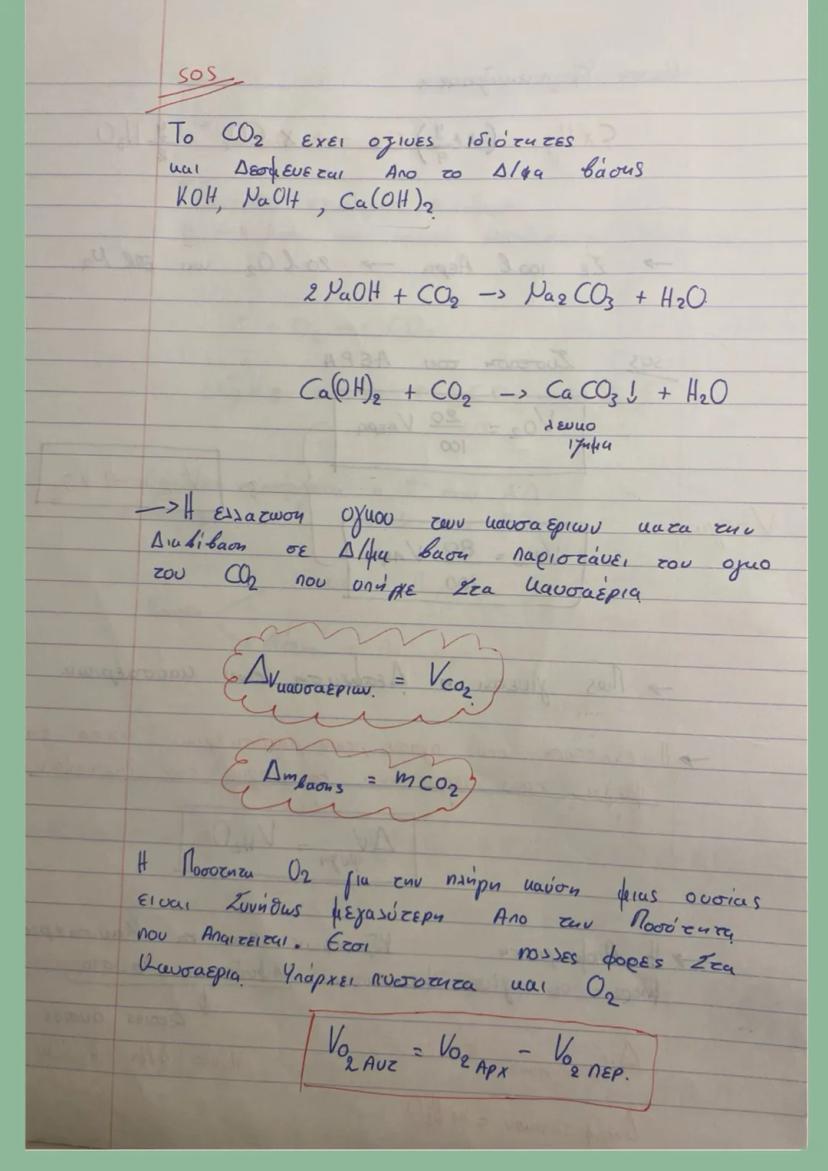 SOS
Το CO2 εχει οξινες ιδιότητες
και Δεσμευεται Απο το Δ/μα βάσης
KOH, NaOH, Ca(OH)2
2 NaOH + CO2 → Na2CO3 + H2O
Ca(OH)2 + CO2 → CaCO3↓ + H2O
λευκο
ιζημα
→ Η ελλατωση ογκου των καυσαεριων κατα την
Διαβίβαση σε Δ/μα βαση παριστάνει τον ογκο
του CO2 που υπήρχε Στα Καυσαέρια
ΔVκαυσαεριων = VCO2
Δmβασης = mCO2
Η Ποσοτητα O2 για την πλήρη καύση μιας ουσίας
ειναι Συνήθως μεγαλύτερη Απο την Ποσότητα
που Απαιτειται. Ετσι πολλες φορες Στα
Καυσαερια Υπάρχει ποσοτητα και O2
VO2 Αντ = VO2 Αρχ - VO2 ΠΕΡ.